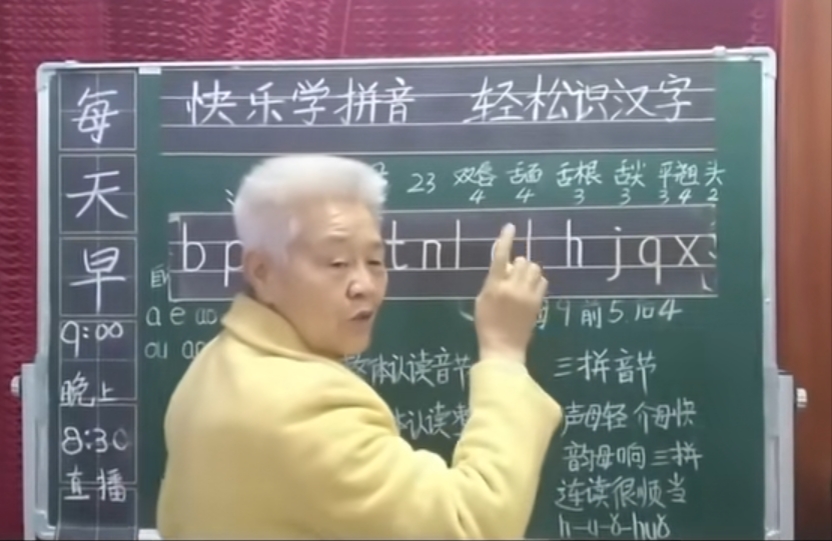 每
天
早
9:00
晚上
8:30
直播
快乐学拼音 轻松识汉字
23 双唇 舌面 舌根 舌尖 平翘 头
4 4 3 3 3 4 2
b p t n l h j q x
a e
ou
9 前5.后4
体认读音节 三拼音节
体认读 声母轻 介母快
韵母响 三拼
连读很顺当